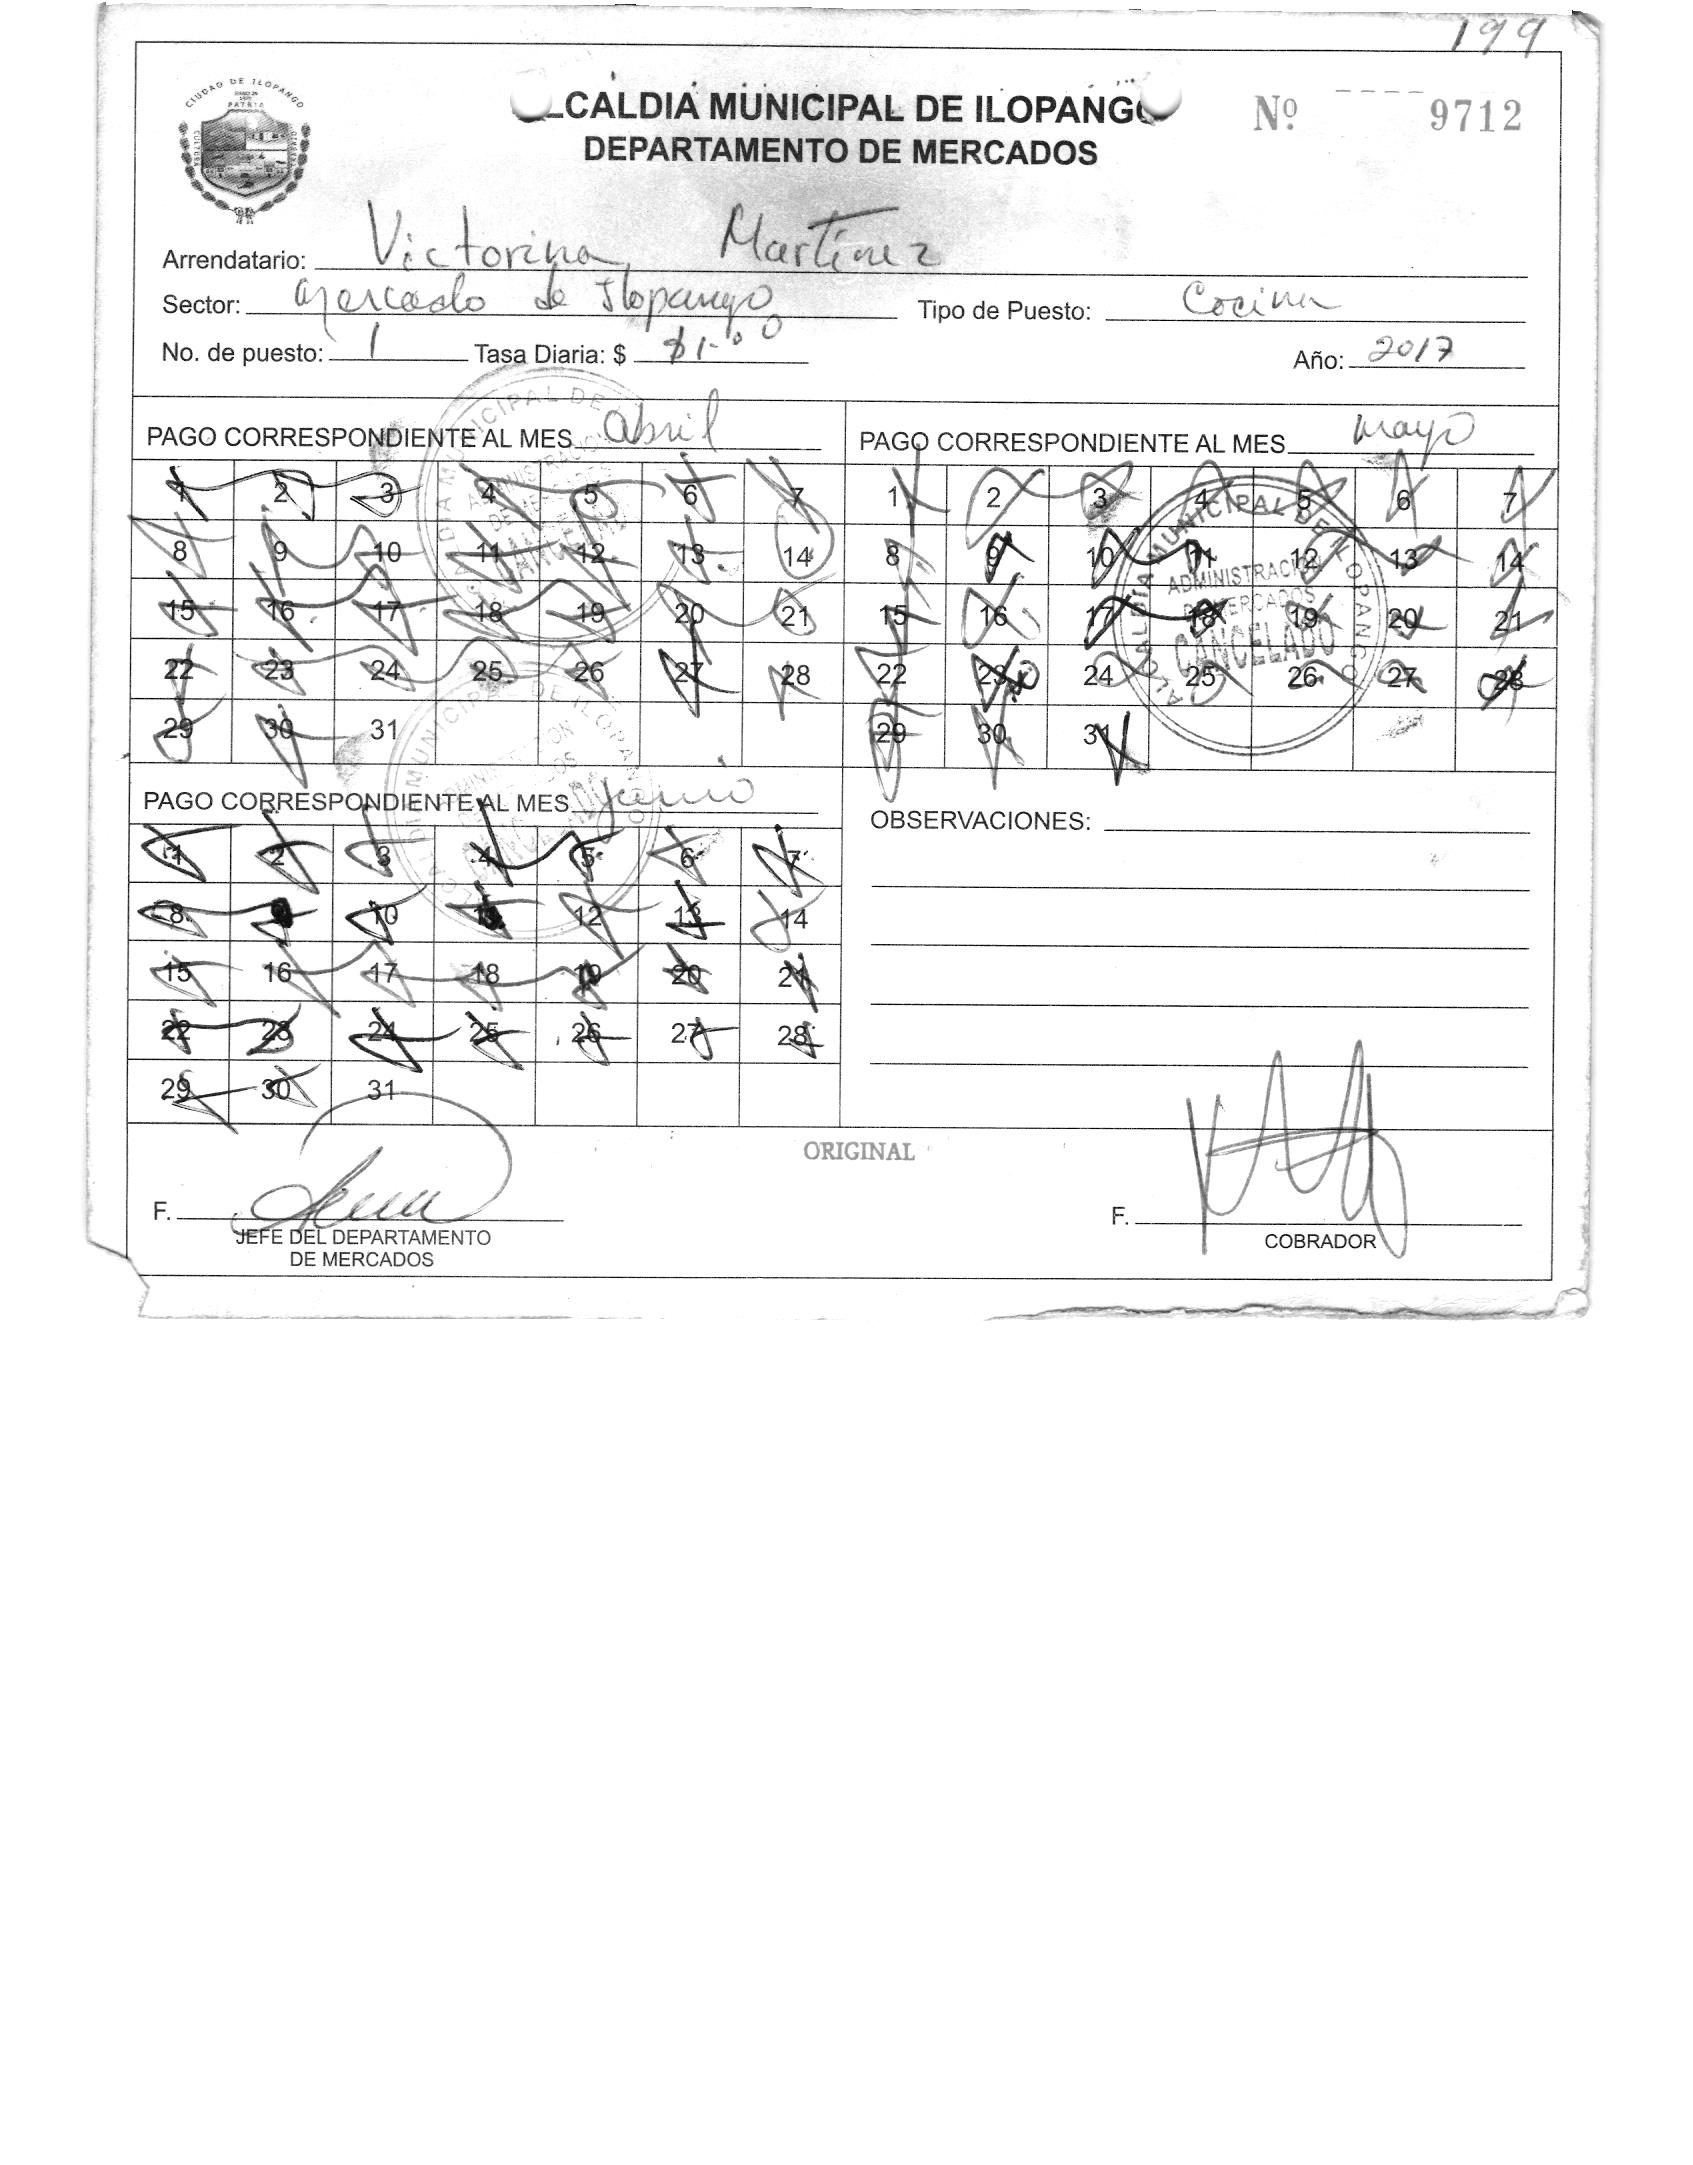 199
CIUDAD DE ILOPANGO
PATRIA
CULTURA
ALCALDIA MUNICIPAL DE ILOPANGO
DEPARTAMENTO DE MERCADOS
Nº 9712
Arrendatario: Victorina Martínez
Sector: Mercado de Ilopango Tipo de Puesto: Cocina
No. de puesto: 1 Tasa Diaria: $ $1.00 Año: 2017
PAGO CORRESPONDIENTE AL MES abril
1 2 3 4 5 6 7
8 9 10 11 12 13 14
15 16 17 18 19 20 21
22 23 24 25 26 27 28
29 30 31
PAGO CORRESPONDIENTE AL MES mayo
1 2 3 4 5 6 7
8 9 10 11 12 13 14
15 16 17 18 19 20 21
22 23 24 25 26 27 28
29 30 31
ALCALDIA MUNICIPAL DE ILOPANGO
ADMINISTRACION
DE MERCADOS
CANCELADO
PAGO CORRESPONDIENTE AL MES junio
1 2 3 4 5 6 7
8 9 10 11 12 13 14
15 16 17 18 19 20 21
22 23 24 25 26 27 28
29 30 31
OBSERVACIONES:
ORIGINAL
F.
JEFE DEL DEPARTAMENTO
DE MERCADOS
F.
COBRADOR